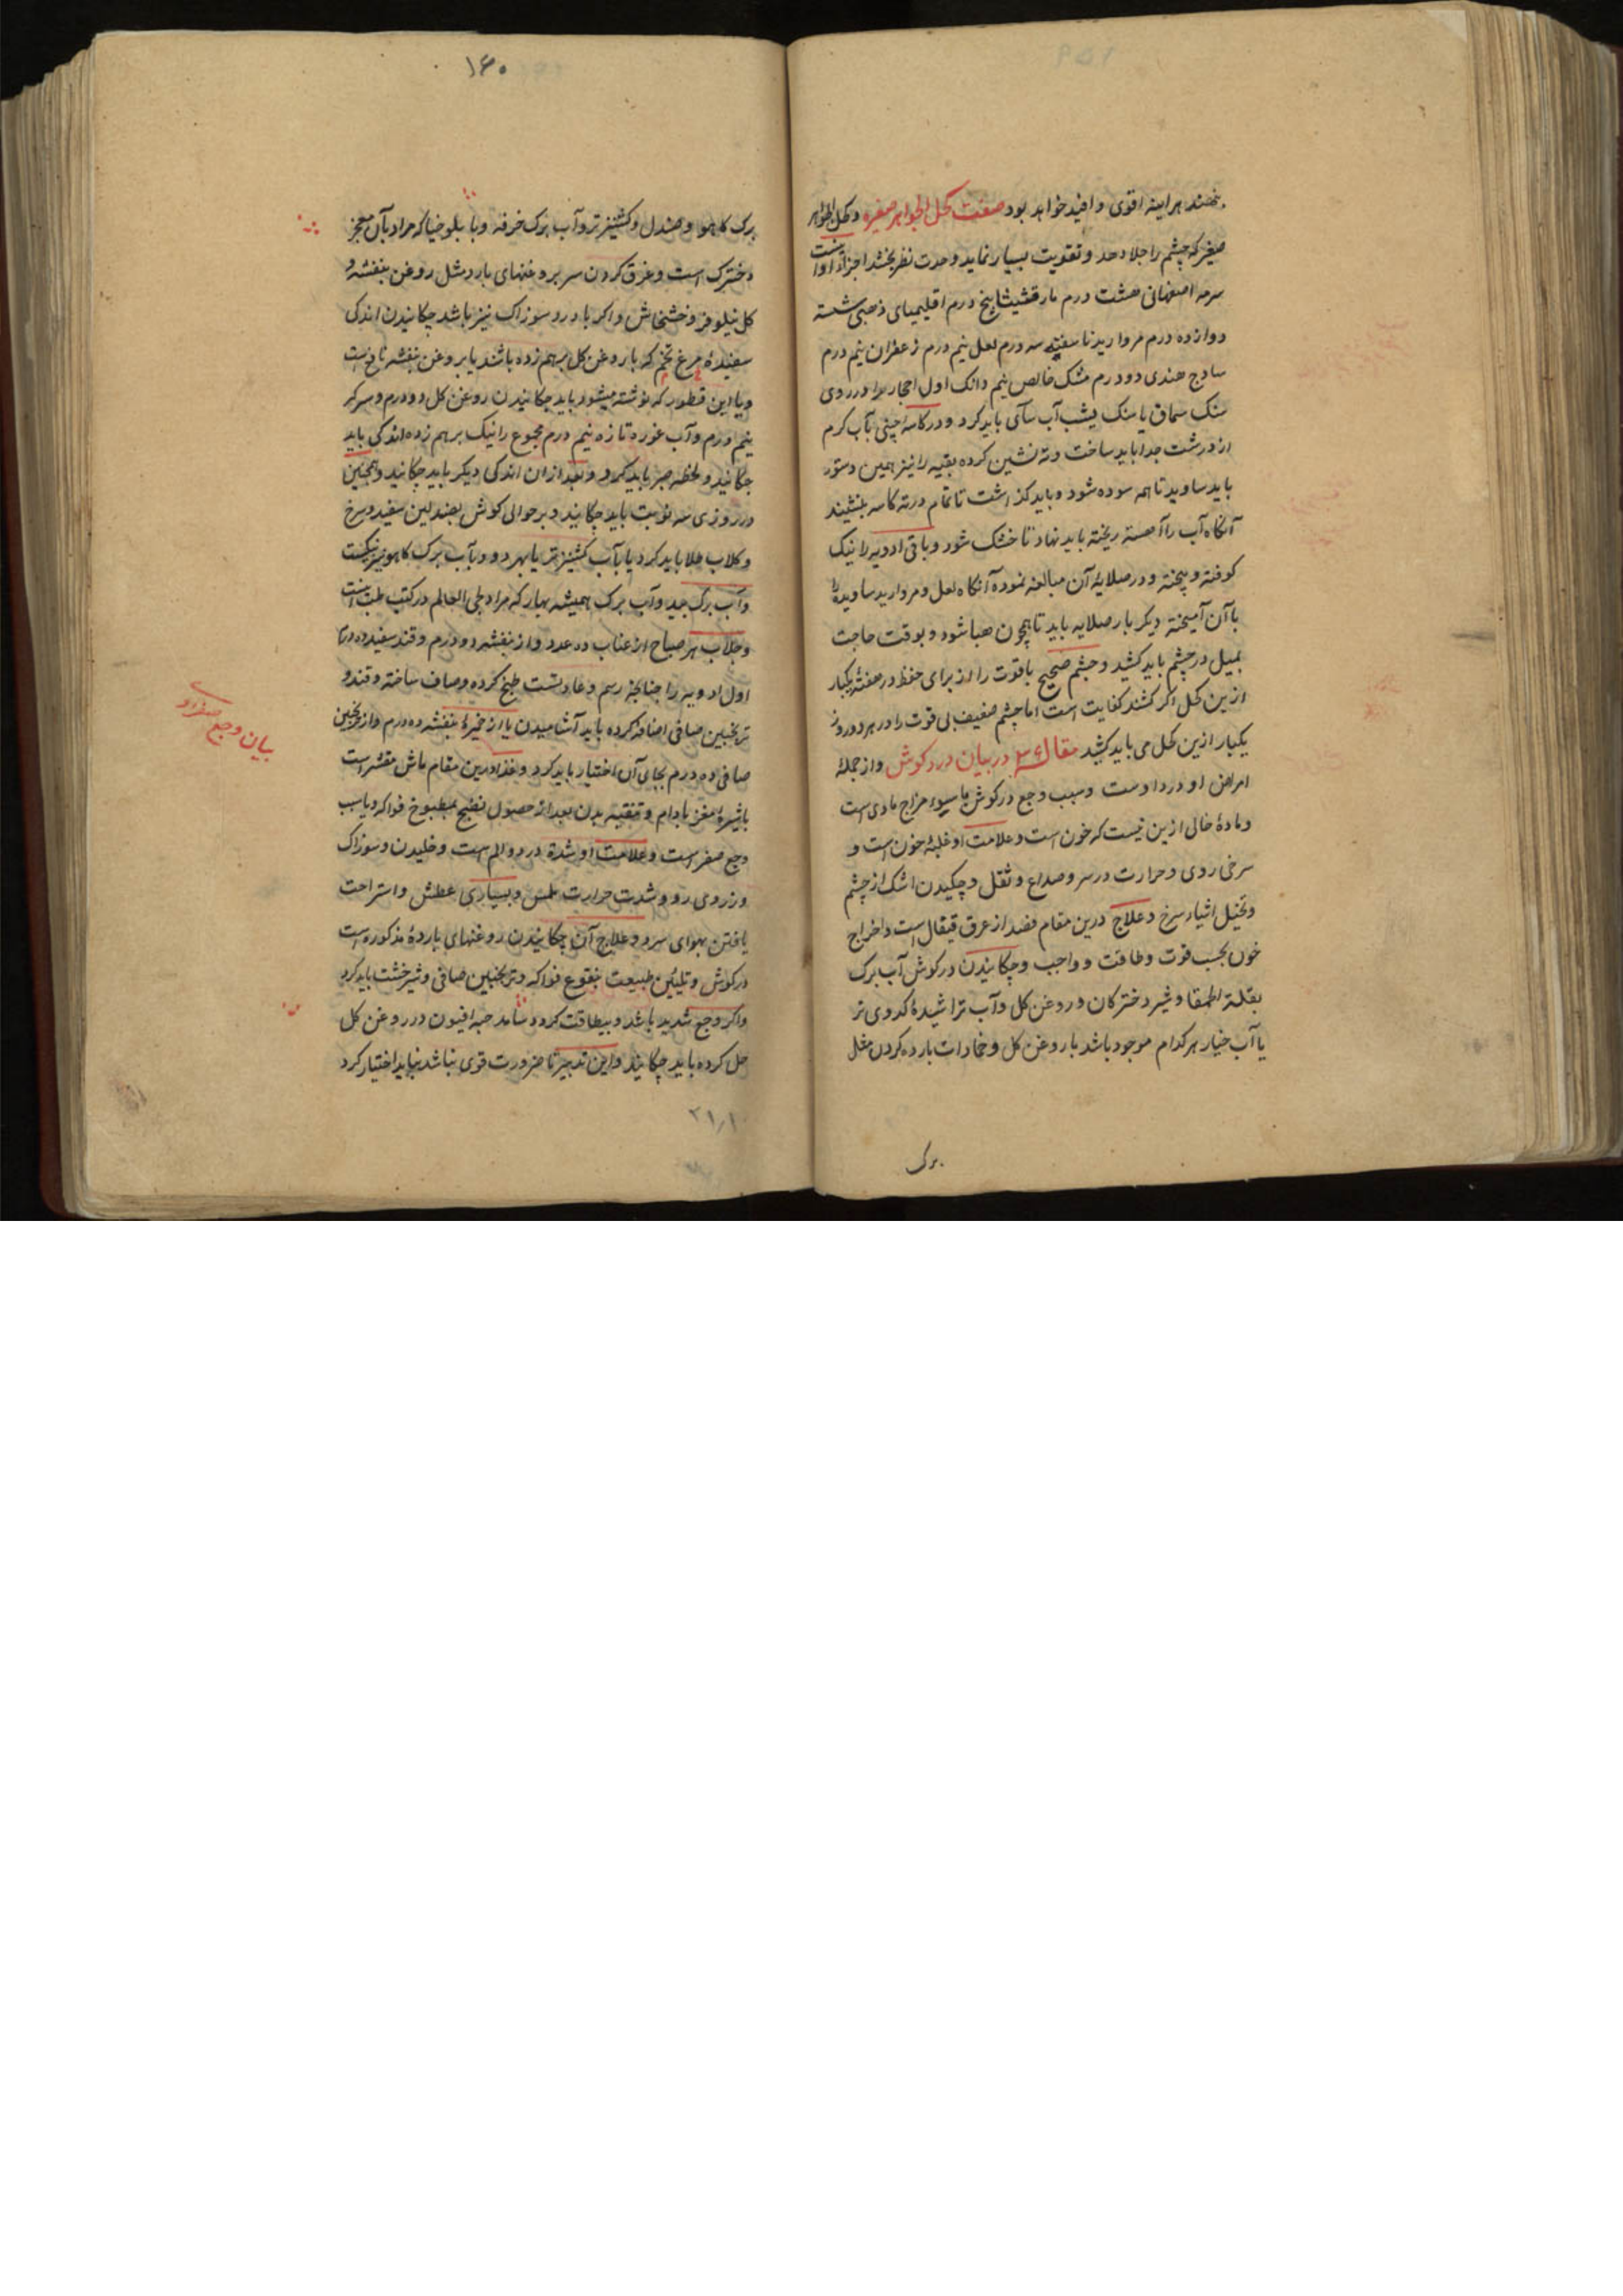 نهند هر اینه اقوی و افید خواهد بود صفت کحل الجواهر صغیره و کحل الجواهر
صغیر که چشم را جلا دهد و تقویت بسیار نماید و حدت نظر بخشد اجزاء او اینست
سرمه اصفهانی هشت درم مارقشیشا پنج درم اقلیمیای ذهبی شسته
دوازده درم مروارید ناسفته سه درم لعل نیم درم زعفران نیم درم
سادج هندی دو درم مشک خالص نیم دانک اول احجار را در روی
سنک سماق یا سنک یشب آب سای باید کرد و در کاسه چینی بآب کرم
از درشت جدا باید ساخت و ته نشین کرده بقیه را نیز بهمین دستور
باید ساوید تا همه سوده شود و باید کذاشت تا تمام در ته کاسه بنشیند
آنکاه آب را آهسته ریخته باید نهاد تا خشک شود و باقی ادویه را نیک
کوفته و بیخته و در صلایه آن مبالغه نموده آنکاه لعل و مروارید ساویده را
با آن آمیخته دیکر بار صلایه باید تا همچون هبا شود و بوقت حاجت
بمیل در چشم باید کشید و چشم صحیح با قوت را از برای حفظ در هفته یکبار
ازین کحل اکر کشند کفایت است اما چشم ضعیف بی قوت را در هر دو روز
یکبار ازین کحل می باید کشید مقاله در بیان درد کوش و از جمله
امراض او درد اوست و سبب وجع در کوش یا سوء مزاج مادی است
و ماده خالی ازین نیست که خون است و علامت او غلبه خون است و
سرخی روی و حرارت در سر و صداع و ثقل و چکیدن اشک از چشم
و تخیل اشیاء سرخ و علاج درین مقام فصد از عرق قیفال است و اخراج
خون بحسب قوت و طاقت و واجب و چکانیدن در کوش آب برک
بقلة الحمقا و شیر دخترکان و روغن کل و آب تراشیده کدوی تر
یا آب خیار هر کدام موجود باشد با روغن کل و ضمادات بارده کردن مثل
برک
۱۶۰
برک کاهو و صندل و کشنیز تر و آب برک خرفه و با بلوخیا که مراد بآن معجز
دخترک است و غرق کردن سر بروغنهای بارد مثل روغن بنفشه و
کل نیلوفر و خشخاش و اکر با درد سوزاک نیز باشد چکانیدن اندکی
سفیدهٔ مرغ تخم که با روغن کل برهم زده باشند یا بروغن بنفشه نافع است
و یا این قطور که نوشته میشود باید چکانیدن روغن کل دو درم و سرکه
نیم درم و آب غوره تازه نیم درم مجموع را نیک برهم زده اندکی باید
چکانید و لحظه صبر باید کرد و بعد ازان اندکی دیکر باید چکانید و همچنین
در روزی سه نوبت باید چکانید و بر حوالی کوش بصندلین سفید و سرخ
و کلاب طلا باید کرد یا بآب کشنیز تر یا بهر دو و بآب برک کاهو نیز نیکست
و آب برک بید و آب برک همیشه بهار که مراد حی العالم در کتب طب اینست
و جلاب هر صباح از عناب ده عدد و از بنفشه دو درم و قند سفید ده درم
اول ادویه را چنانچه رسم و عادتست طبخ کرده و صاف ساخته و قند و
ترنجبین صافی اضافه کرده باید آشامیدن یا از خمیرهٔ بنفشه ده درم و از ترنجبین
صافی ده درم بجای آن اختیار باید کرد و غذا درین مقام ماش مقشر است
با شیرهٔ مغز بادام و تنقیه بدن بعد از حصول نضج بمطبوخ فواکه و یا سبب
وجع صفر است و علامت او شدة درد و الم است و خلیدن و سوزاک
و زردی رو و شدت حرارت ملمس و بسیاری عطش و استراحت
یافتن بهوای سرد و علاج آن چکانیدن روغنهای بارده مذکوره است
در کوش و تلیین طبیعت بنقوع فواکه و ترنجبین صافی و شیرخشت باید کرد
و اکر وجع شدید باشد و بیطاقت کرده شامد حبه افیون در روغن کل
حل کرده باید چکانید و این تدبیر تا ضرورت قوی نباشد نباید اختیار کرد
بیان وجع صفراوی
۲۱٫۱۰